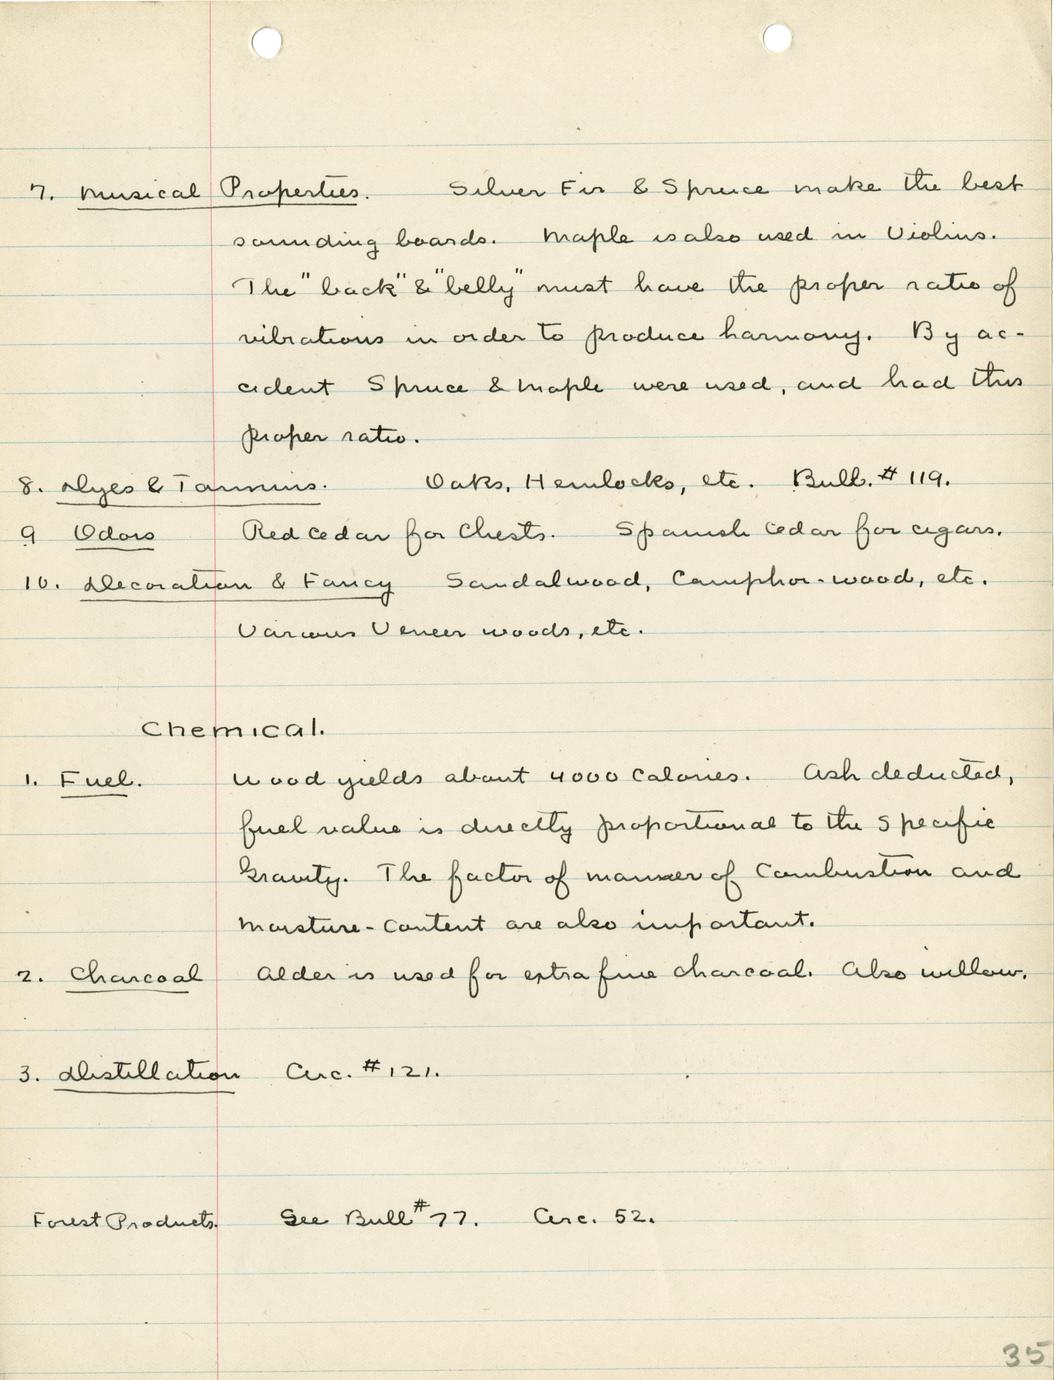 7. Musical Properties. Silver Fir & Spruce make the best
sounding boards. Maple is also used in Violins.
The "back" & "belly" must have the proper ratio of
vibrations in order to produce harmony. By ac-
cident Spruce & Maple were used, and had this
proper ratio.
8. Dyes & Tannins. Oaks, Hemlocks, etc. Bull. # 119.
9 Odors Red Cedar for Chests. Spanish Cedar for cigars.
10. Decoration & Fancy Sandalwood, Camphor-wood, etc.
Various Veneer woods, etc.
Chemical.
1. Fuel. Wood yields about 4000 Calories. Ash deducted,
fuel value is directly proportional to the Specific
Gravity. The factor of manner of Combustion and
Moisture-Content are also important.
2. Charcoal Alder is used for extra fine charcoal. Also willow.
3. Distillation Circ. # 121.
Forest Products. See Bull # 77. Circ. 52.
35